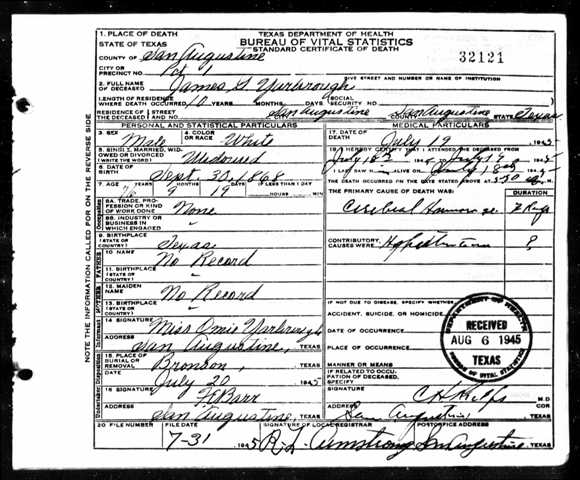 TEXAS DEPARTMENT OF HEALTH
BUREAU OF VITAL STATISTICS
STANDARD CERTIFICATE OF DEATH
32121
1. PLACE OF DEATH
STATE OF TEXAS
COUNTY OF San Augustine
CITY OR PRECINCT NO. 1
GIVE STREET AND NUMBER OR NAME OF INSTITUTION
2. FULL NAME OF DECEASED James G Yarbrough
LENGTH OF RESIDENCE WHERE DEATH OCCURRED 10 YEARS MONTHS DAYS SOCIAL SECURITY NO.
RESIDENCE OF THE DECEASED STREET San Augustine COUNTY San Augustine STATE Texas
PERSONAL AND STATISTICAL PARTICULARS
3. SEX Male
4. COLOR OR RACE White
5. SINGLE, MARRIED, WIDOWED OR DIVORCED (WRITE THE WORD) Widowed
6. DATE OF BIRTH Sept. 30, 1868
7. AGE 76 9 19 IF LESS THAN 1 DAY
8A. TRADE, PROFESSION OR KIND OF WORK DONE None
8B. INDUSTRY OR BUSINESS IN WHICH ENGAGED "
9. BIRTHPLACE (STATE OR COUNTRY) Texas
10. NAME No Record
11. BIRTHPLACE (STATE OR COUNTRY) "
12. MAIDEN NAME No Record
13. BIRTHPLACE (STATE OR COUNTRY) "
14. SIGNATURE Miss Omie Yarbrough
ADDRESS San Augustine, TEXAS
15. PLACE OF BURIAL OR REMOVAL Bronson, TEXAS
DATE July 20 1945
16. SIGNATURE
ADDRESS San Augustine, TEXAS
MEDICAL PARTICULARS
17. DATE OF DEATH July 19 1945
18. I HEREBY CERTIFY THAT I ATTENDED THE DECEASED FROM
July 18 1945 July 19 1945
I LAST SAW H ALIVE ON July 18 1945
THE DEATH OCCURRED ON THE DATE STATED ABOVE AT
THE PRIMARY CAUSE OF DEATH WAS:
DURATION
Cerebral
CONTRIBUTORY CAUSES WERE: Hypertension ?
IF NOT DUE TO DISEASE, SPECIFY WHETHER
ACCIDENT, SUICIDE, OR HOMICIDE
DATE OF OCCURRENCE
PLACE OF OCCURRENCE
MANNER OR MEANS
IF RELATED TO OCCUPATION OF DECEASED, SPECIFY
SIGNATURE M.D.
ADDRESS San Augustine TEXAS
DEPARTMENT OF HEALTH
RECEIVED
AUG 6 1945
TEXAS
BUREAU OF VITAL STATISTICS
20 FILE NUMBER
FILE DATE 7-31 1945
SIGNATURE OF LOCAL REGISTRAR R. L. Armstrong
POSTOFFICE ADDRESS San Augustine TEXAS
NOTE THE INFORMATION CALLED FOR ON THE REVERSE SIDE